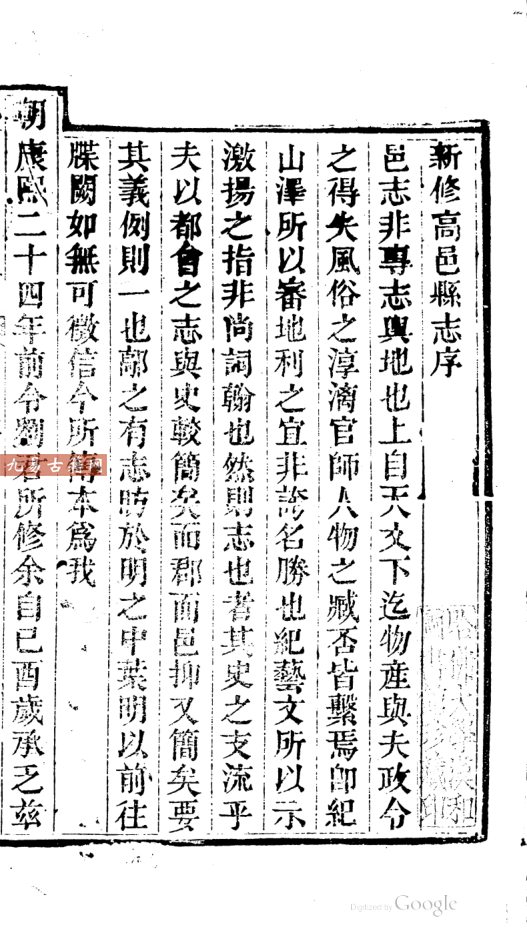 新修高邑縣志序
邑志非專志輿地也上自天文下迄物産與夫政令
之得失風俗之淳漓官師人物之臧否皆繫焉卽紀
山澤所以審地利之宜非誇名勝也紀藝文所以示
激揚之指非尚詞翰也然則志也者其史之支流乎
夫以都會之志與史較簡矣而郡而邑抑又簡矣要
其義例則一也鄗之有志昉於明之中葉明以前往
牒闕如無可徵信今所傳本爲我
朝康熙二十四年前令劉君所修余自己酉歲承乏兹
九易古籍网
Digitized by Google